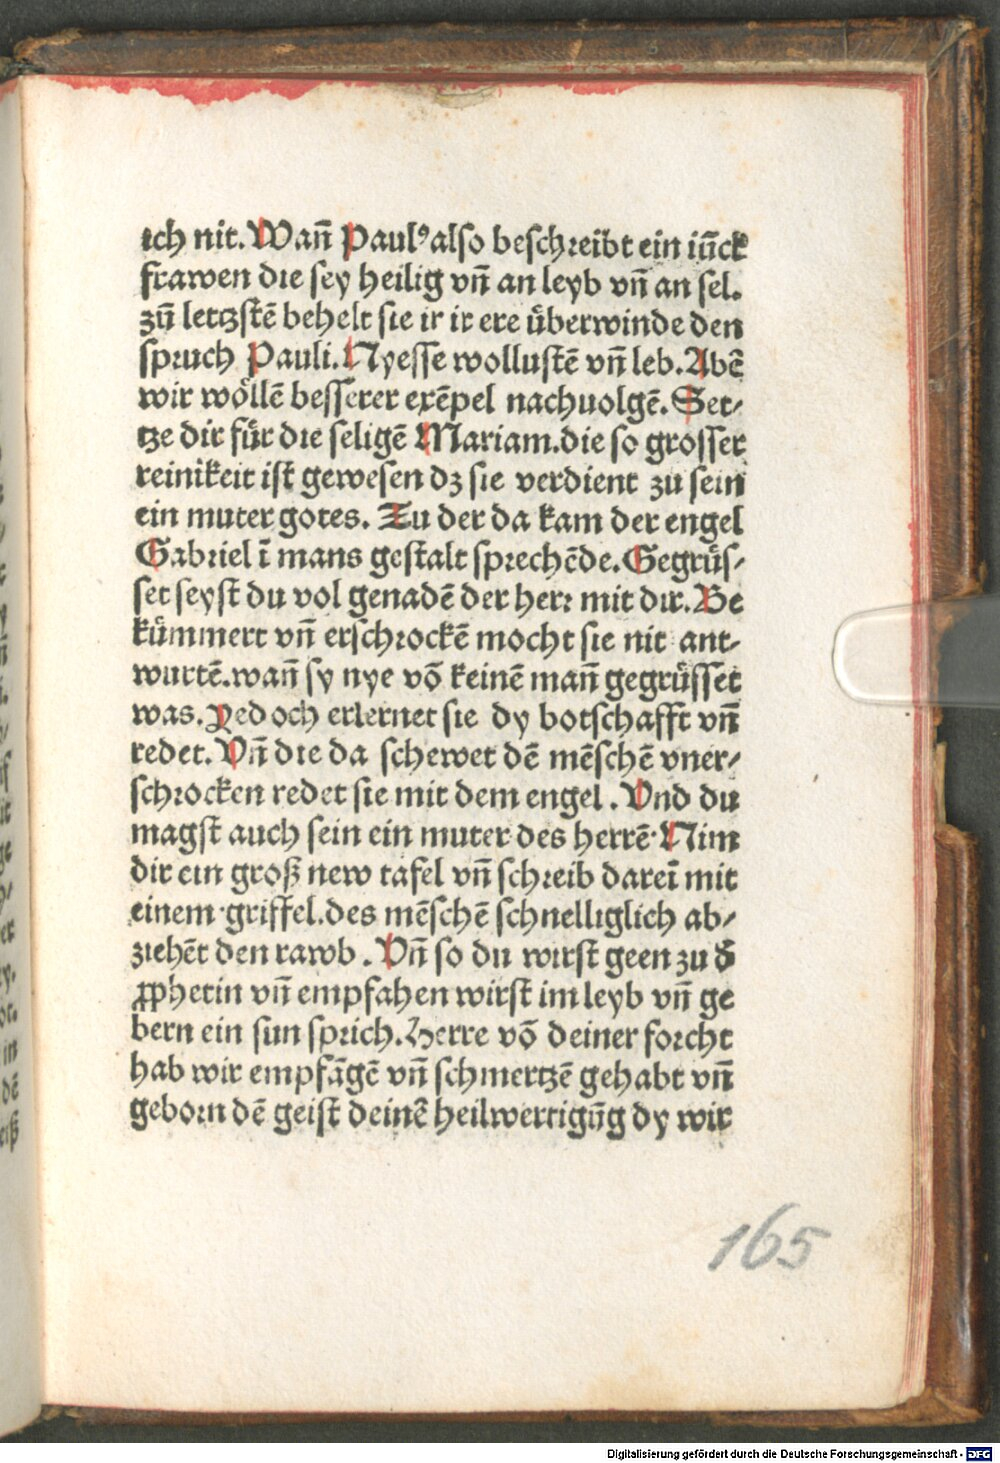 ich nit. Wañ Paulꝰ also beschreibt ein iũck
frawen die sey heilig vñ an leyb vñ an sel.
zũ letzstẽ behelt sie ir ir ere uͤberwinde den
spruch Pauli. Nyesse wollustẽ vñ leb. Abẽ
wir woͤllẽ besserer exẽpel nachuolgẽ. Set⸗
tze dir fuͤr die seligẽ Mariam. die so grosser
reinikeit ist gewesen dz sie verdient zu sein
ein muter gotes. Zu der da kam der engel
Gabriel ĩ mans gestalt sprechẽde. Gegruͤs⸗
set seyst du vol genadẽ der herr mit dir. Be
kuͤmmert vñ erschrockẽ mocht sie nit ant⸗
wurtẽ. wañ sy nye võ keinẽ mañ gegruͤsset
was. Yedoch erlernet sie dy botschafft vñ
redet. Vñ die da schewet dẽ mẽschẽ vner⸗
schrocken redet sie mit dem engel. Vnd du
magst auch sein ein muter des herrẽ. Nim
dir ein groß new tafel vñ schreib dareĩ mit
einem griffel. des mẽschẽ schnelliglich ab⸗
ziehẽt den rawb. Vñ so du wirst geen zu đ
prophetin vñ empfahen wirst im leyb vñ ge
bern ein sun sprich. Herre võ deiner forcht
hab wir empfãgẽ vñ schmertzẽ gehabt vñ
geborn dẽ geist deinẽ heilwertigũg dy wir
165
Digitalisierung gefördert durch die Deutsche Forschungsgemeinschaft - DFG